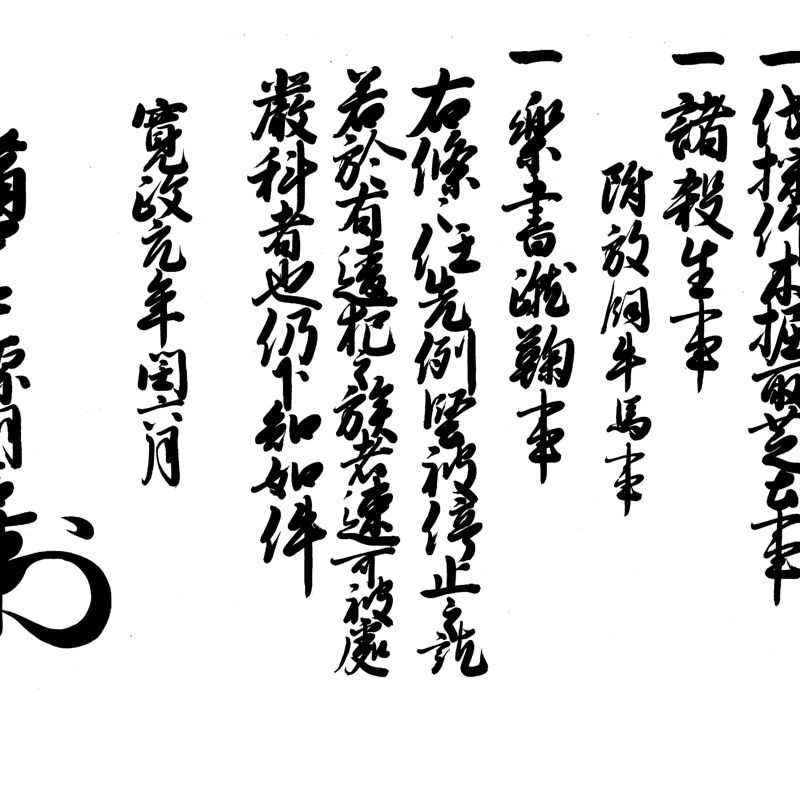 一 伐採竹木掘取芝土事
一 諸殺生事
附放飼牛馬事
一 樂書蹴鞠事
右條〻任先例堅被停止之訖
若於有違犯之族者速可被處
嚴科者也仍下知如件
寛政元年閏六月
源朝臣